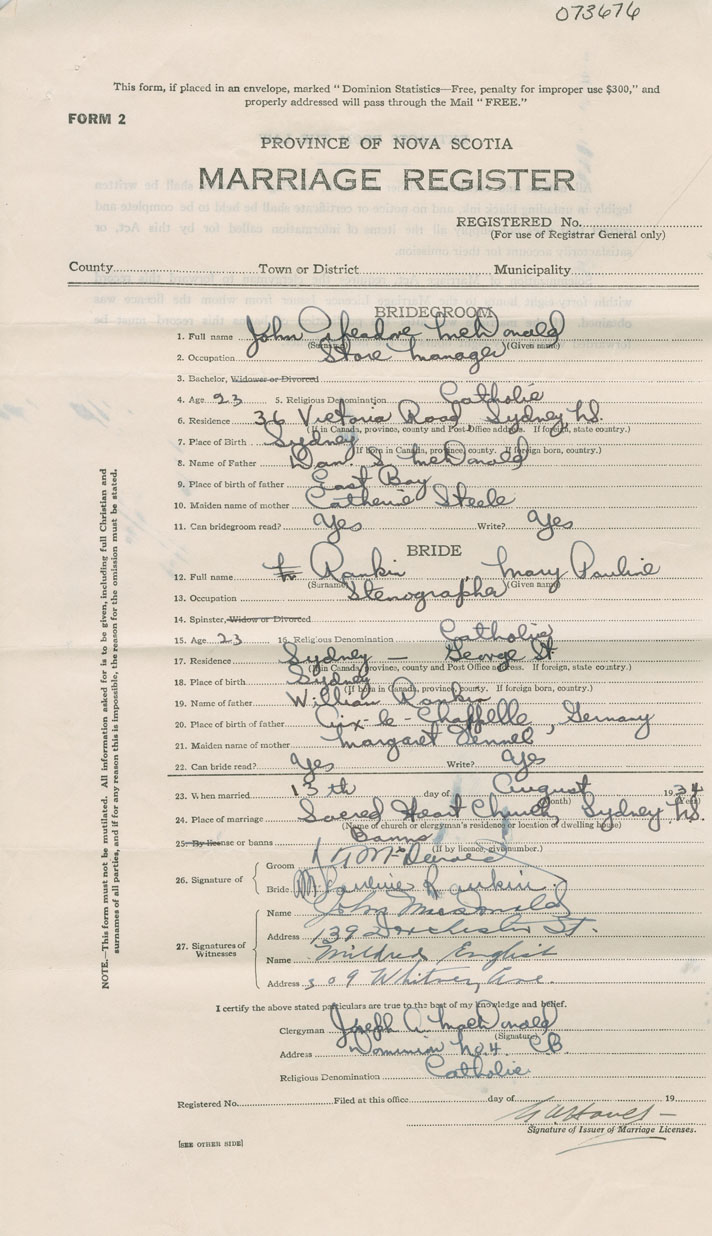 073676
This form, if placed in an envelope, marked "Dominion Statistics—Free, penalty for improper use $300," and
properly addressed will pass through the Mail "FREE."
FORM 2
PROVINCE OF NOVA SCOTIA
MARRIAGE REGISTER
REGISTERED No.
(For use of Registrar General only)
County Town or District Municipality
BRIDEGROOM
1. Full name John McDonald
(Surname) (Given name)
2. Occupation Store Manager
3. Bachelor, Widower or Divorced
4. Age 23 5. Religious Denomination Catholic
6. Residence 36 Victoria Road Sydney N.S.
(If in Canada, province, county and Post Office address. If foreign, state country.)
7. Place of Birth Sydney
(If born in Canada, province, county. If foreign born, country.)
8. Name of Father Dan. S. McDonald
9. Place of birth of father East Bay
10. Maiden name of mother Catherine Steele
11. Can bridegroom read? Yes Write? Yes
BRIDE
12. Full name Rankin, Mary Pauline
(Surname) (Given name)
13. Occupation Stenographer
14. Spinster, Widow or Divorced
15. Age 23 16. Religious Denomination Catholic
17. Residence Sydney — George St
(If in Canada, province, county and Post Office address. If foreign, state country.)
18. Place of birth Sydney
(If born in Canada, province, county. If foreign born, country.)
19. Name of father William Rankin
20. Place of birth of father Aix-le-Chappelle, Germany
21. Maiden name of mother Margaret
22. Can bride read? Yes Write? Yes
23. When married 13th day of August 1934
(Month) (Year)
24. Place of marriage Sacred Heart Church, Sydney N.S.
(Name of church or clergyman's residence or location of dwelling house)
25. By license or banns Banns
(If by licence, give number.)
26. Signature of
Groom McDonald
Bride M Pauline Rankin.
27. Signatures of Witnesses
Name John McDonald
Address 139 Dorchester St.
Name Mildred English
Address 309 Whitney Ave.
I certify the above stated particulars are true to the best of my knowledge and belief.
Clergyman Joseph A. MacDonald
(Signature)
Address Dominion No. 4. CB.
Religious Denomination Catholic
Registered No. Filed at this office day of 19
Signature of Issuer of Marriage Licenses.
[SEE OTHER SIDE]
NOTE.—This form must not be mutilated. All information asked for is to be given, including full Christian and
surnames of all parties, and if for any reason this is impossible, the reason for the omission must be stated.